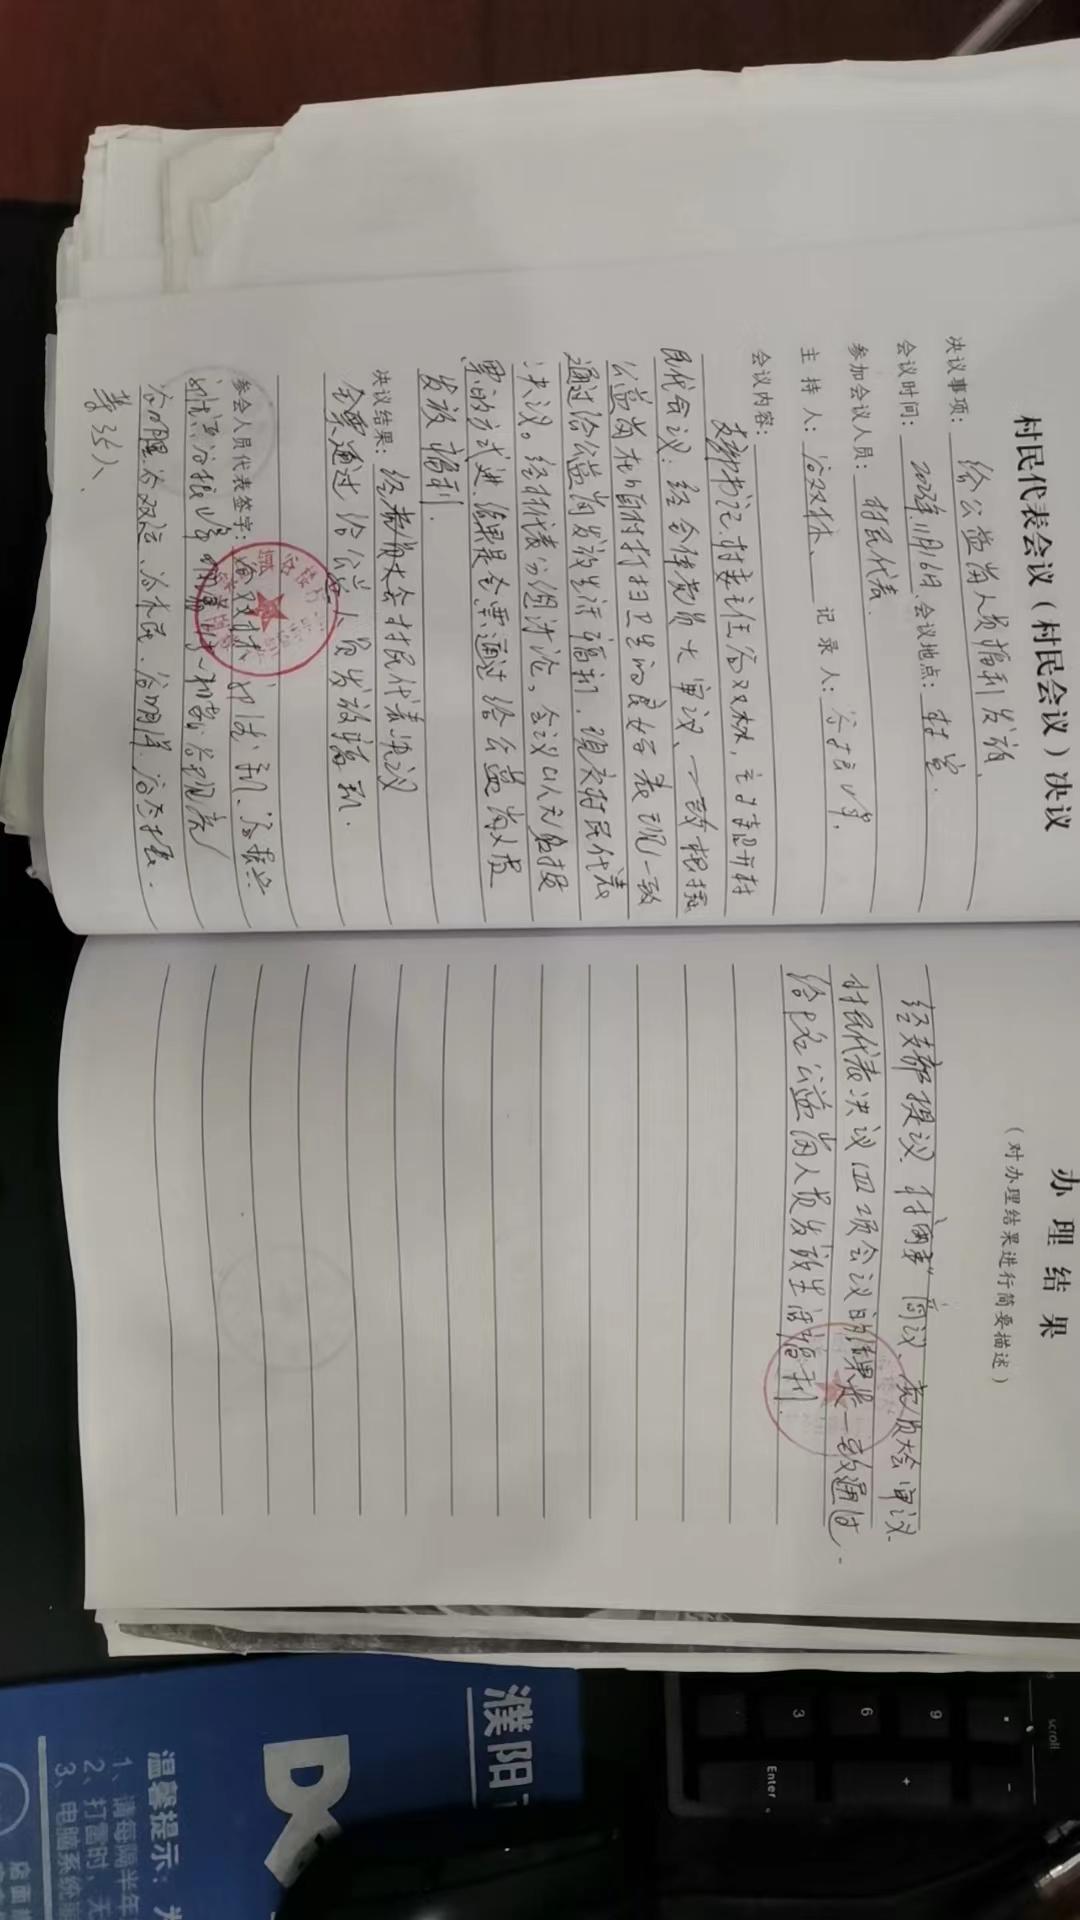 村民代表会议（村民会议）决议
决议事项：给公益岗人员福利发放。
会议时间：年月16日 会议地点：村室.
参加会议人员：村民代表.
主持人：谷双林、 记录人：谷
会议内容：
支部书记.村委主任谷双林，主持召开村
民代会议：经全体党员大审议、一致根据
公益岗在项村打扫卫生的良好表现一致
通过给公益岗发放生活福利.现交村民代表
决议。经村代表分组讨论，会议以无记名投
票的方式进.结果是全票通过给公益岗人员
发放福利.
决议结果：经党员大会村民代表决议
全票通过给公益人员发放福利.
参会人员代表签字：谷双林
谷双运.谷
办理结果
（对办理结果进行简要描述）
经支部提议.村"两委"商议、党员大会审议
村民代表决议四项会议的结果是一致通过.
给名公益岗人员发放生活福利.
濮阳
D
温馨提示：
1、请每隔半年
2、打雷时，无
3、电脑系统
scroll
9
6
3
+
-
Enter